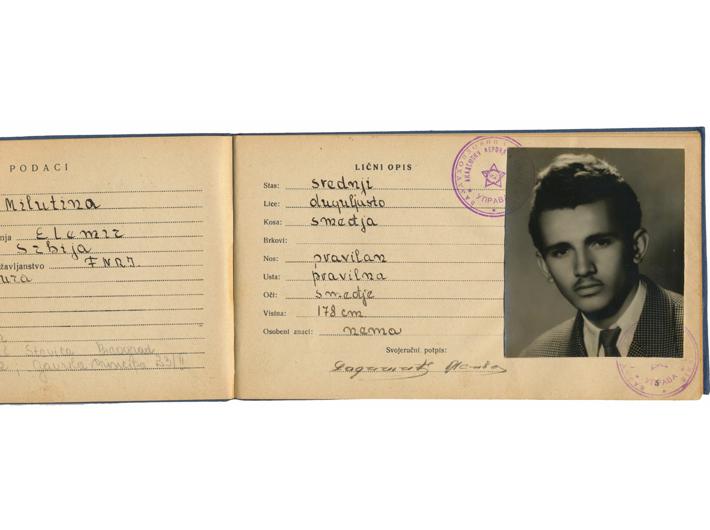 PODACI
Milutina
nja Elemir
Srbija
žavljanstvo FNRJ.
ura
Stavica Beograd
33/II
LIČNI OPIS
Stas: srednji
Lice: duguljasto
Kosa: smedja
Brkovi:
Nos: pravilan
Usta: pravilna
Oči: smedje
Visina: 178 cm.
Osobeni znaci: nema
Svojeručni potpis:
УПРАВА
УПРАВА